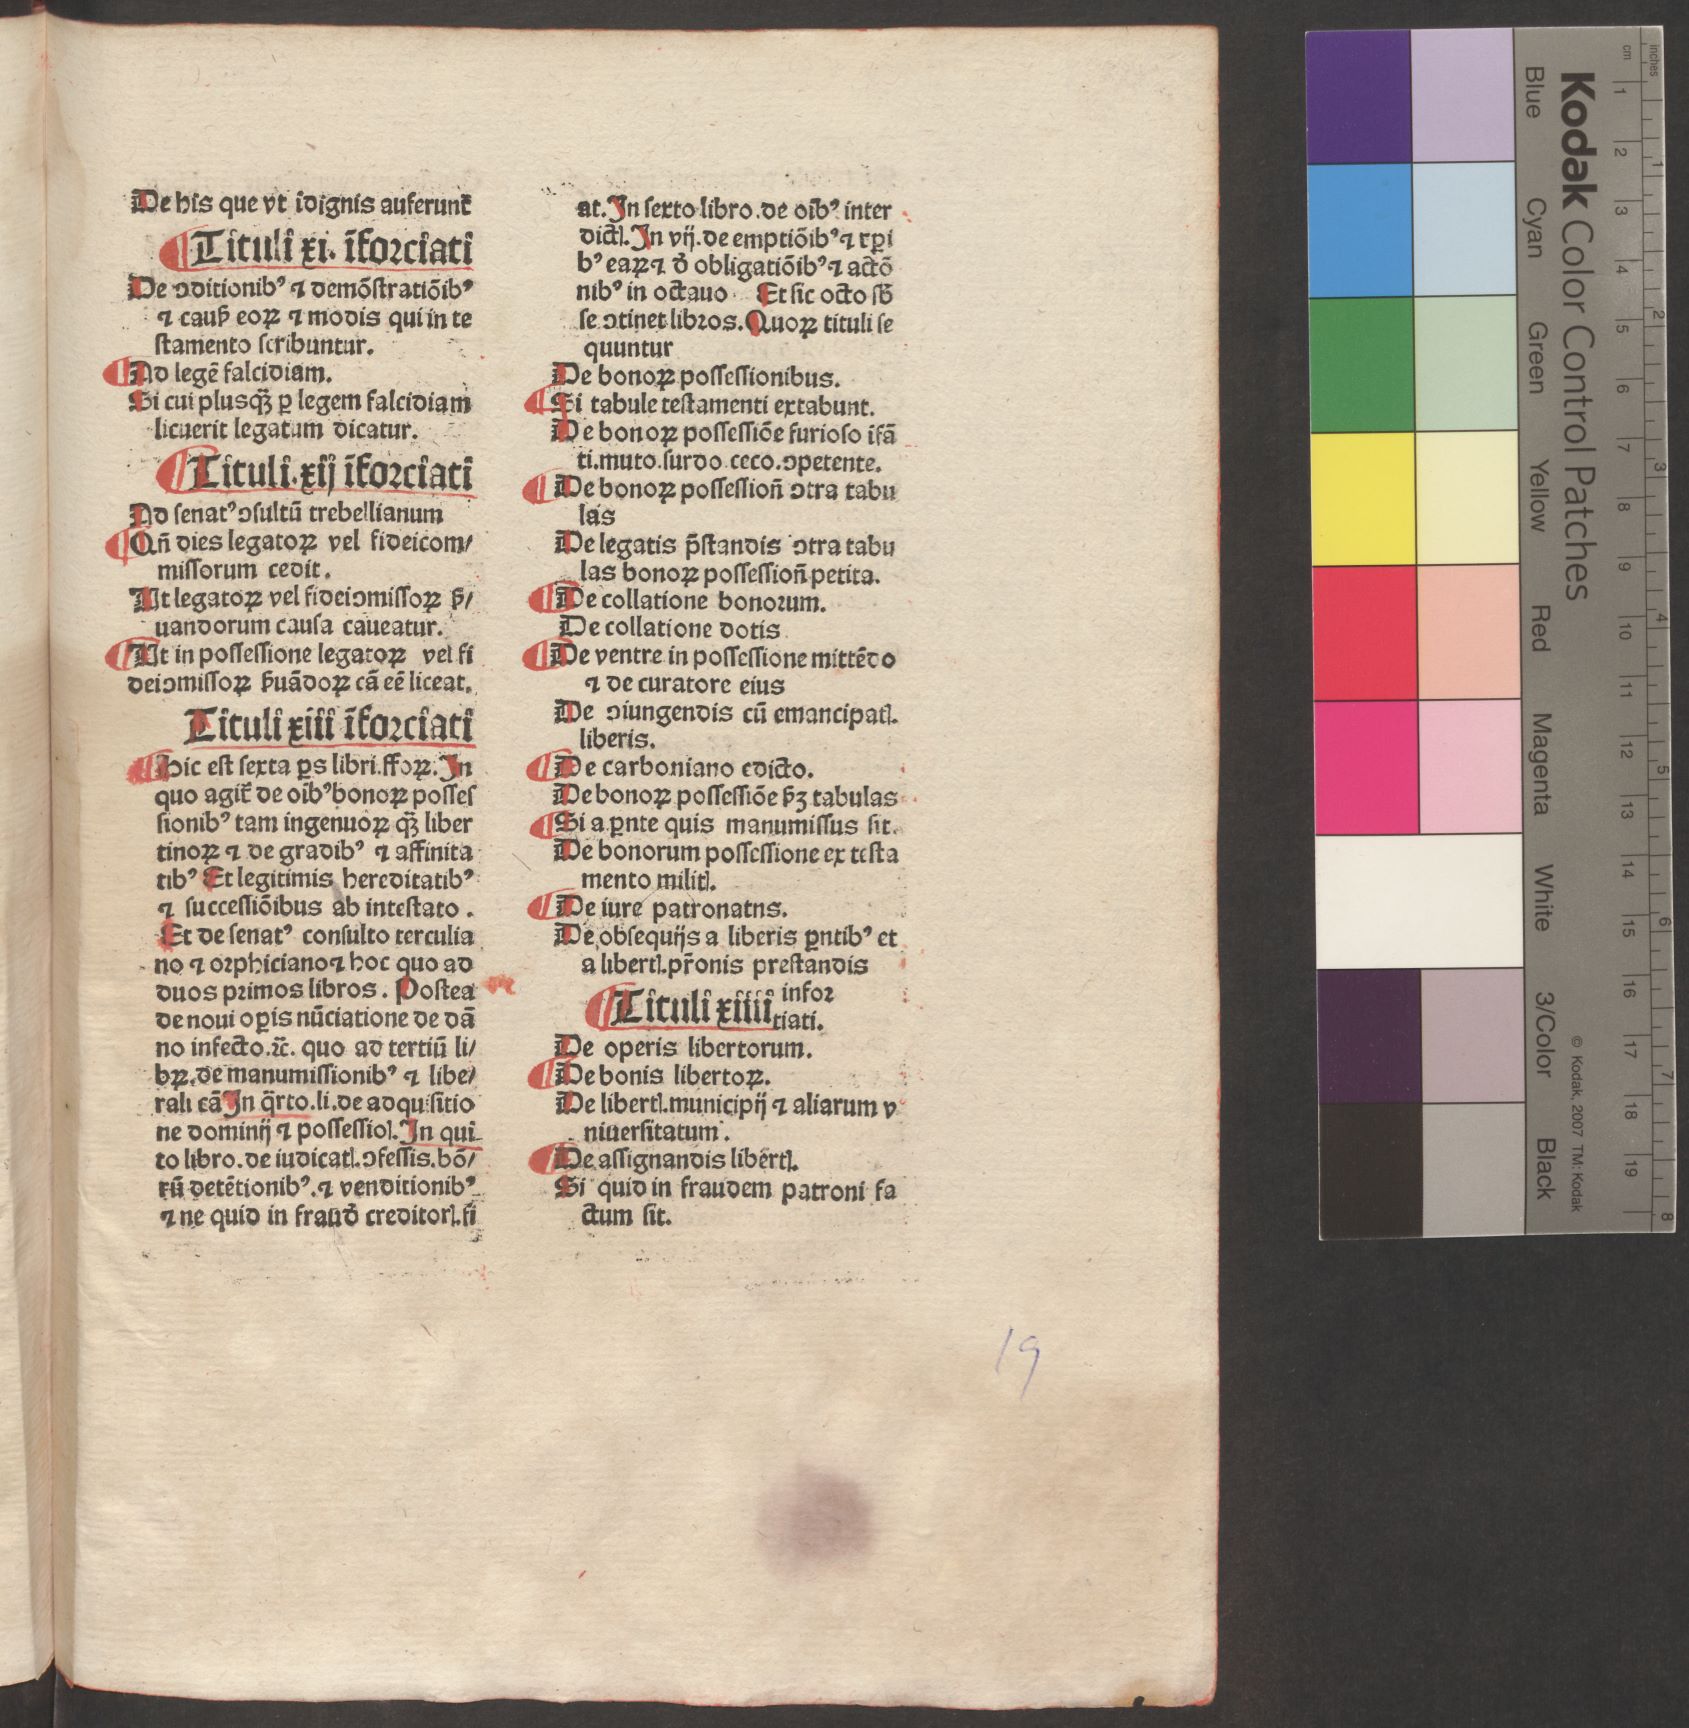 De his que vt īdignis auferunt᷑
Tituli xi. īforciati
De ↄditionibꝰ ⁊ demōstratiōibꝰ
⁊ caus̄ eoꝝ ⁊ modis qui in te
stamento scribuntur.
Ad legē falcidiam.
Si cui plusqꝫ̄ ꝑ legem falcidiam
licuerit legatum dicatur.
Tituli.xij īforciati
Ad senatꝰↄsultū trebellianum
Qn̄ dies legatoꝝ vel fideicom/
missorum cedit.
Ut legatoꝝ vel fideiↄmissoꝝ ẜ/
uandorum causa caueatur.
Ut in possessione legatoꝝ vel fi
deiↄmissoꝝ ẜuādoꝝ cā eē liceat.
Tituli xiii īforciati
Hic est sexta ꝑs libri.ffoꝝ. In
quo agit᷑ de oībꝰbonoꝝ posses
sionibꝰ tam ingenuoꝝ qꝫ̄ liber
tinoꝝ ⁊ de gradibꝰ ⁊ affinita
tibꝰ Et legitimis hereditatibꝰ
⁊ successiōibus ab intestato .
Et de senatꝰ consulto terculia
no ⁊ orphiciano⁊ hoc quo ad
duos primos libros. Postea
de noui oꝑis nūciatione de dā
no infecto.⁊c̄. quo ad tertiū li/
bꝝ.de manumissionibꝰ ⁊ libe/
rali cā In q̄rto.li.de adquisitio
ne dominij ⁊ possessioꝭ. In qui
to libro.de iudicatꝭ.ↄfessis.bō/
rū detētionibꝰ.⁊ venditionibꝰ
⁊ ne quid in fraud̄ creditorꝭ.fi
at. In sexto libro.de oībꝰ inter
dictꝭ. In vij.de emptiōibꝰ⁊ rꝑi
bꝰ eaꝝ⁊ d̄ obligatiōibꝰ⁊ actō
nibꝰ in octauo Et sic octo sb̄
se ↄtinet libros. Quoꝝ tituli se
quuntur
De bonoꝝ possessionibus.
Si tabule testamenti extabunt.
De bonoꝝ possessiōe furioso īfā
ti.muto.surdo.ceco.ↄpetente.
De bonoꝝ possession̄ ↄtra tabu
las
De legatis p̄standis ↄtra tabu
las bonoꝝ possession̄ petita.
De collatione bonorum.
De collatione dotis
De ventre in possessione mittēdo
⁊ de curatore eius
De ↄiungendis cū emancipatꝭ.
liberis.
De carboniano edicto.
De bonoꝝ possessiōe ẜꝫ tabulas
Si a ꝑnte quis manumissus sit.
De bonorum possessione ex testa
mento militꝭ.
De iure patronatns.
De obsequijs a liberis ꝑntibꝰ et
a libertꝭ.pr̄onis prestandis
Tituli xiiii infor
tiati.
De operis libertorum.
De bonis libertoꝝ.
De libertꝭ.municipij ⁊ aliarum v
niuersitatum.
De assignandis libertꝭ.
Si quid in fraudem patroni fa
ctum sit.
19
Kodak Color Control Patches
Blue Cyan Green Yellow Red Magenta White 3/Color Black
© Kodak, 2007 TM: Kodak
cm 1 2 3 4 5 6 7 8 9 10 11 12 13 14 15 16 17 18 19
inches 1 2 3 4 5 6 7 8